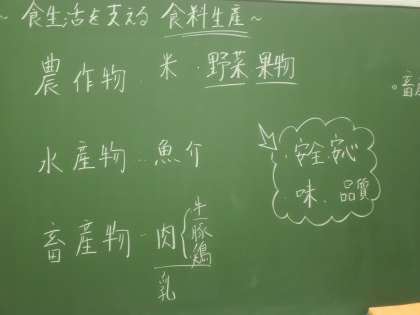 ~ 食生活を支える 食料生産 ~
農作物 ‥ 米 ・ 野菜 果物
水産物 ‥ 魚介
畜産物 ‥ 肉 { 牛 豚 鶏
乳
・安全・安心
・味、品質
。畜